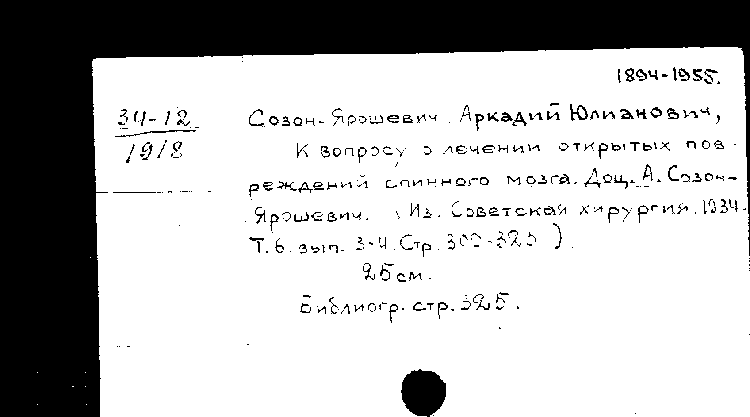 1894-1955.
34-12
1918
Созон-Ярошевич, Аркадий Юлианович,
К вопросу о лечении открытых пов-
реждений спинного мозга. Доц. А. Созон-
Ярошевич. (Из. Советская хирургия. 1934.
Т. 6. вып. 3-4. Стр. )
25 см.
Библиогр. стр. 325.